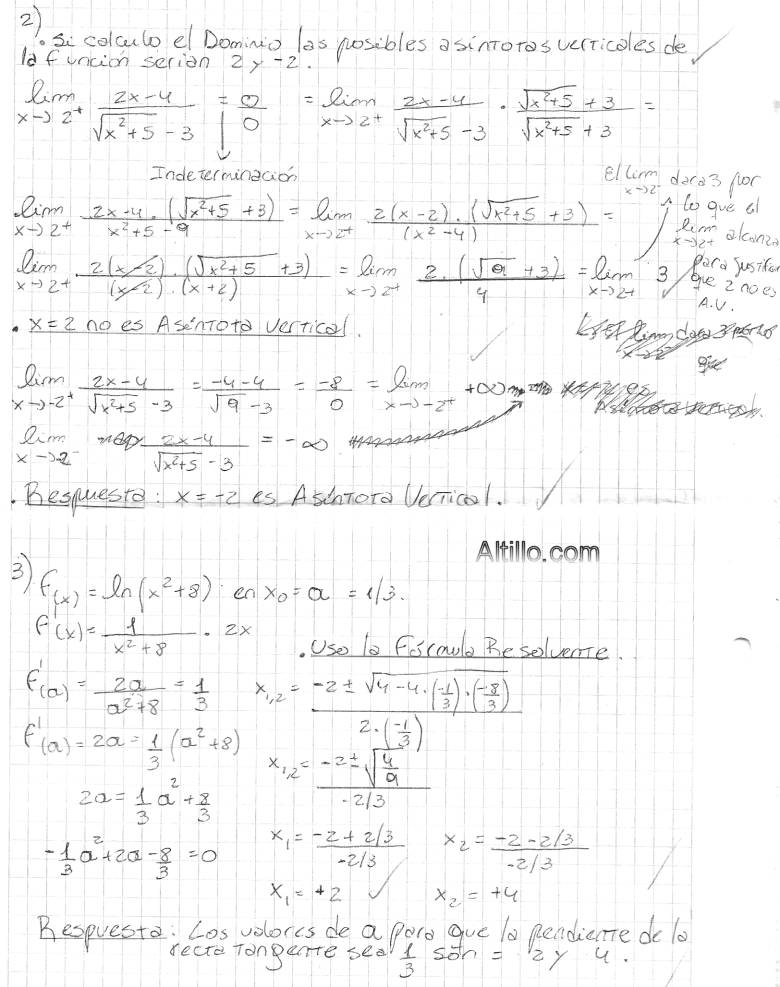 2)
. Si calculo el Dominio las posibles asíntotas verticales de
la función serían 2 y -2.
lim x→2⁺ (2x-4)/(√(x²+5) - 3) = 0/0 = lim x→2⁺ (2x-4)/(√(x²+5) - 3) · (√(x²+5) + 3)/(√(x²+5) + 3) =
Indeterminación
lim x→2⁺ (2x-4 · (√(x²+5) + 3))/(x²+5-9) = lim x→2⁺ (2(x-2) · (√(x²+5) + 3))/(x²-4) =
El lim x→2⁻ dará 3 por
lo que el
lim x→2⁺ alcanza
para justificar
que 2 no es
A.V.
lim x→2⁺ (2(x-2) · (√(x²+5) + 3))/((x-2) · (x+2)) = lim x→2⁺ (2 · (√9 + 3))/4 = lim x→2⁺ 3
. x=2 no es Asíntota vertical.
lim x→-2⁺ (2x-4)/(√(x²+5) - 3) = (-4-4)/(√9 - 3) = -8/0 = lim x→-2⁺ +∞
lim x→-2⁻ (2x-4)/(√(x²+5) - 3) = -∞
. Respuesta: x=-2 es Asíntota Vertical.
Altillo.com
3) f(x) = ln(x²+8) en x₀ = a = 1/3.
f'(x) = 1/(x²+8) · 2x
. Uso la Fórmula Resolvente.
f'(a) = 2a/(a²+8) = 1/3
f'(a) = 2a = 1/3 (a²+8)
2a = 1/3 a² + 8/3
-1/3 a² + 2a - 8/3 = 0
x₁,₂ = (-2 ± √(4-4·(-1/3)·(-8/3)))/(2·(-1/3))
x₁,₂ = (-2 ± √(4/9))/(-2/3)
x₁ = (-2+2/3)/(-2/3) x₂ = (-2-2/3)/(-2/3)
x₁ = +2 x₂ = +4
Respuesta: Los valores de a para que la pendiente de la
recta tangente sea 1/3 son = 2 y 4.